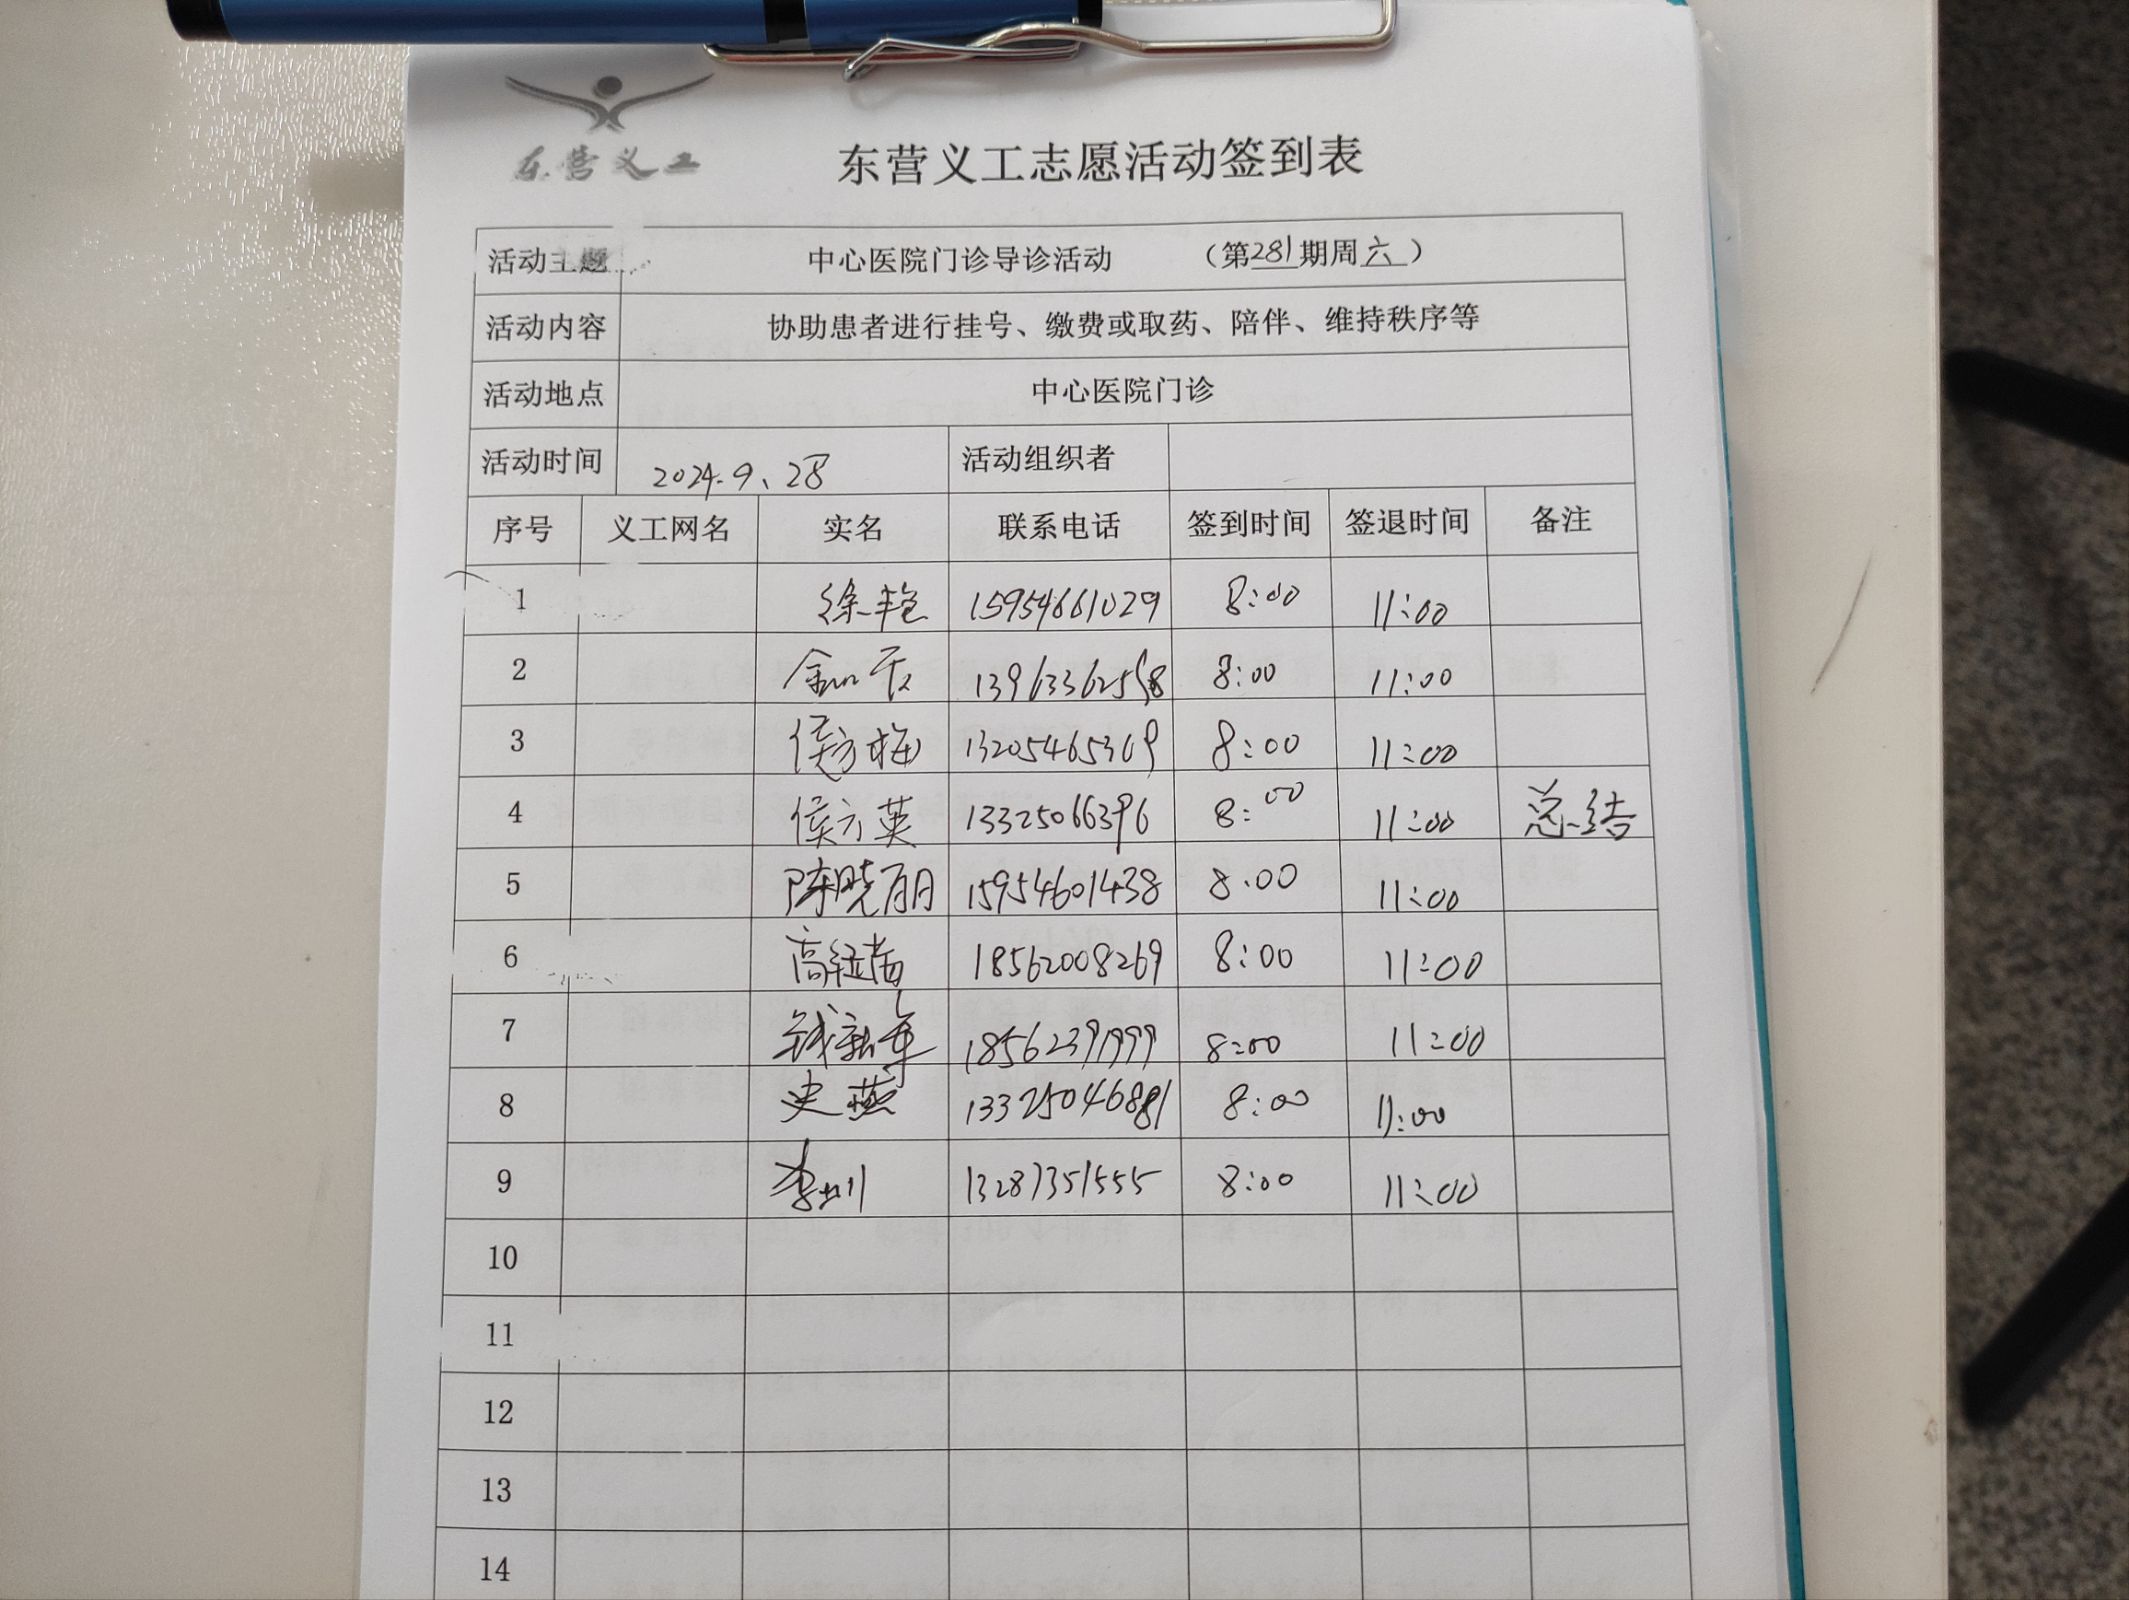 东营义工
东营义工志愿活动签到表
活动主题 中心医院门诊导诊活动 （第281期周六）
活动内容 协助患者进行挂号、缴费或取药、陪伴、维持秩序等
活动地点 中心医院门诊
活动时间 2024.9.28 活动组织者
序号 义工网名 实名 联系电话 签到时间 签退时间 备注
1 徐艳 15954661029 8:00 11:00
2 8:00 11:00
3 侯方梅 13205465369 8:00 11:00
4 侯方英 13325066396 8:00 11:00 总结
5 陈晓丽 15954601438 8.00 11:00
6 18562008269 8:00 11:00
7 钱新军 18562391999 8:00 11:00
8 史燕 13325046881 8:00 11:00
9 13287351555 8:00 11:00
10
11
12
13
14